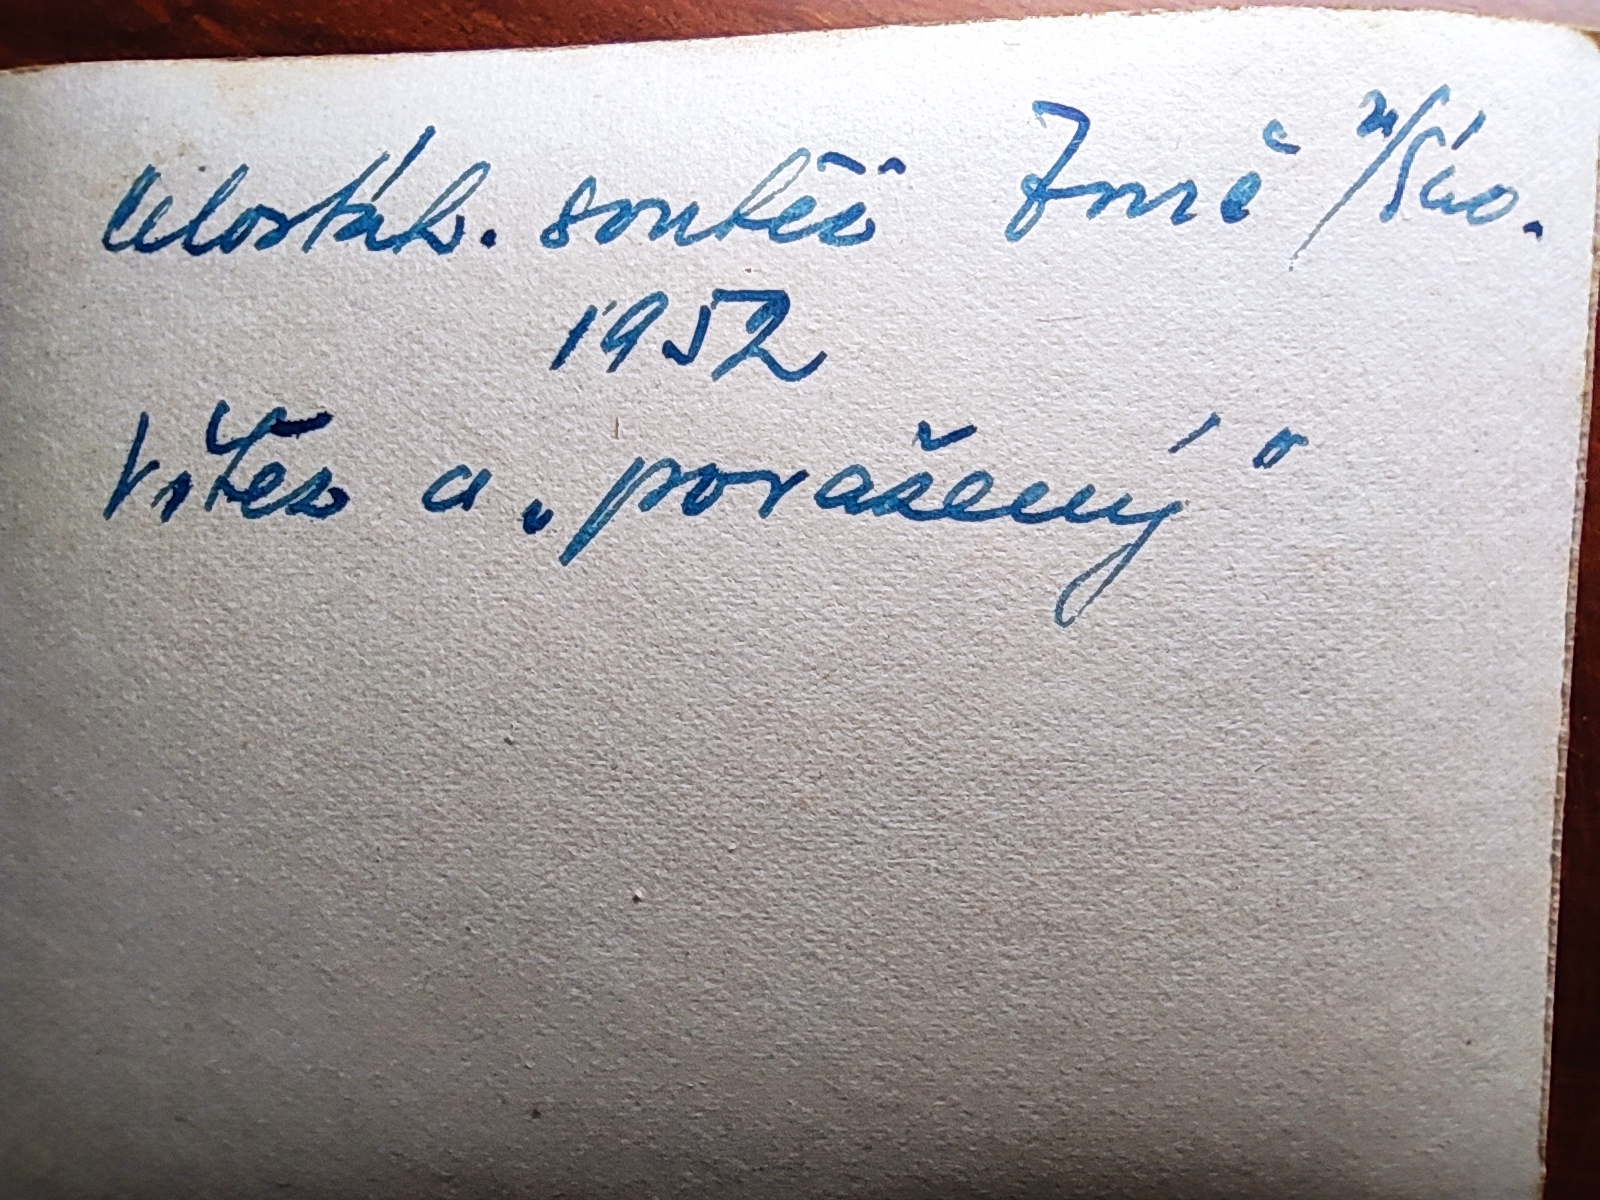 celostát. soutěž Tmě n/Sáz.
1952
Vítěz a „poražený"